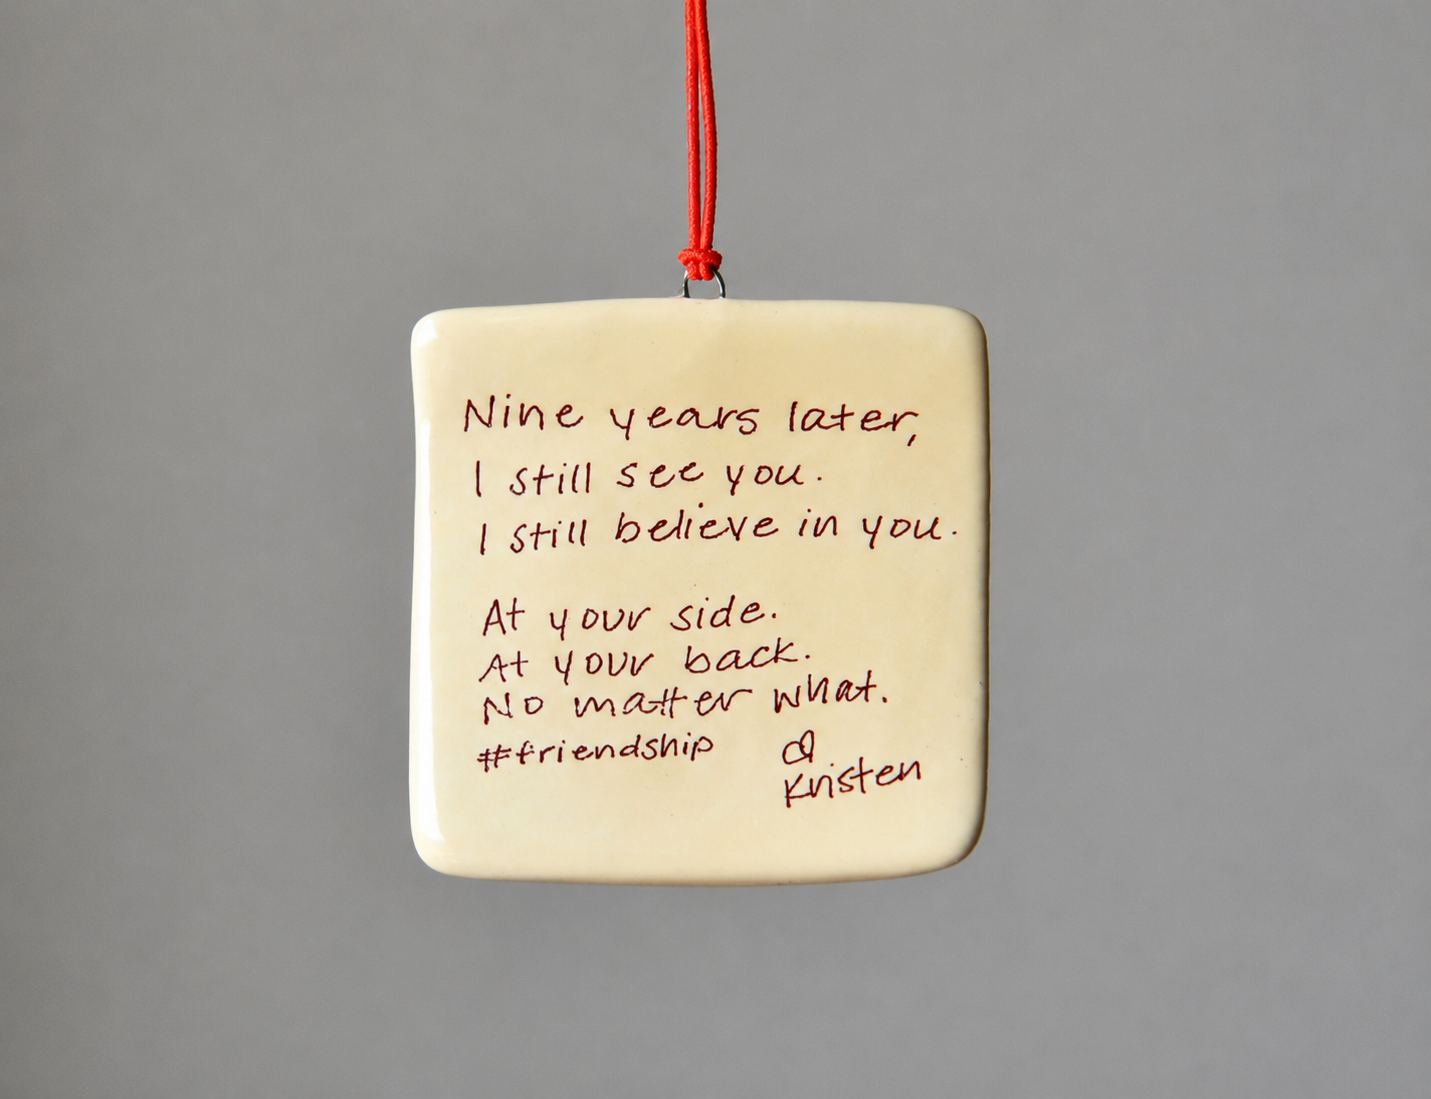 Nine years later,
I still see you.
I still believe in you.
At your side.
At your back.
No matter what.
#friendship
Kristen